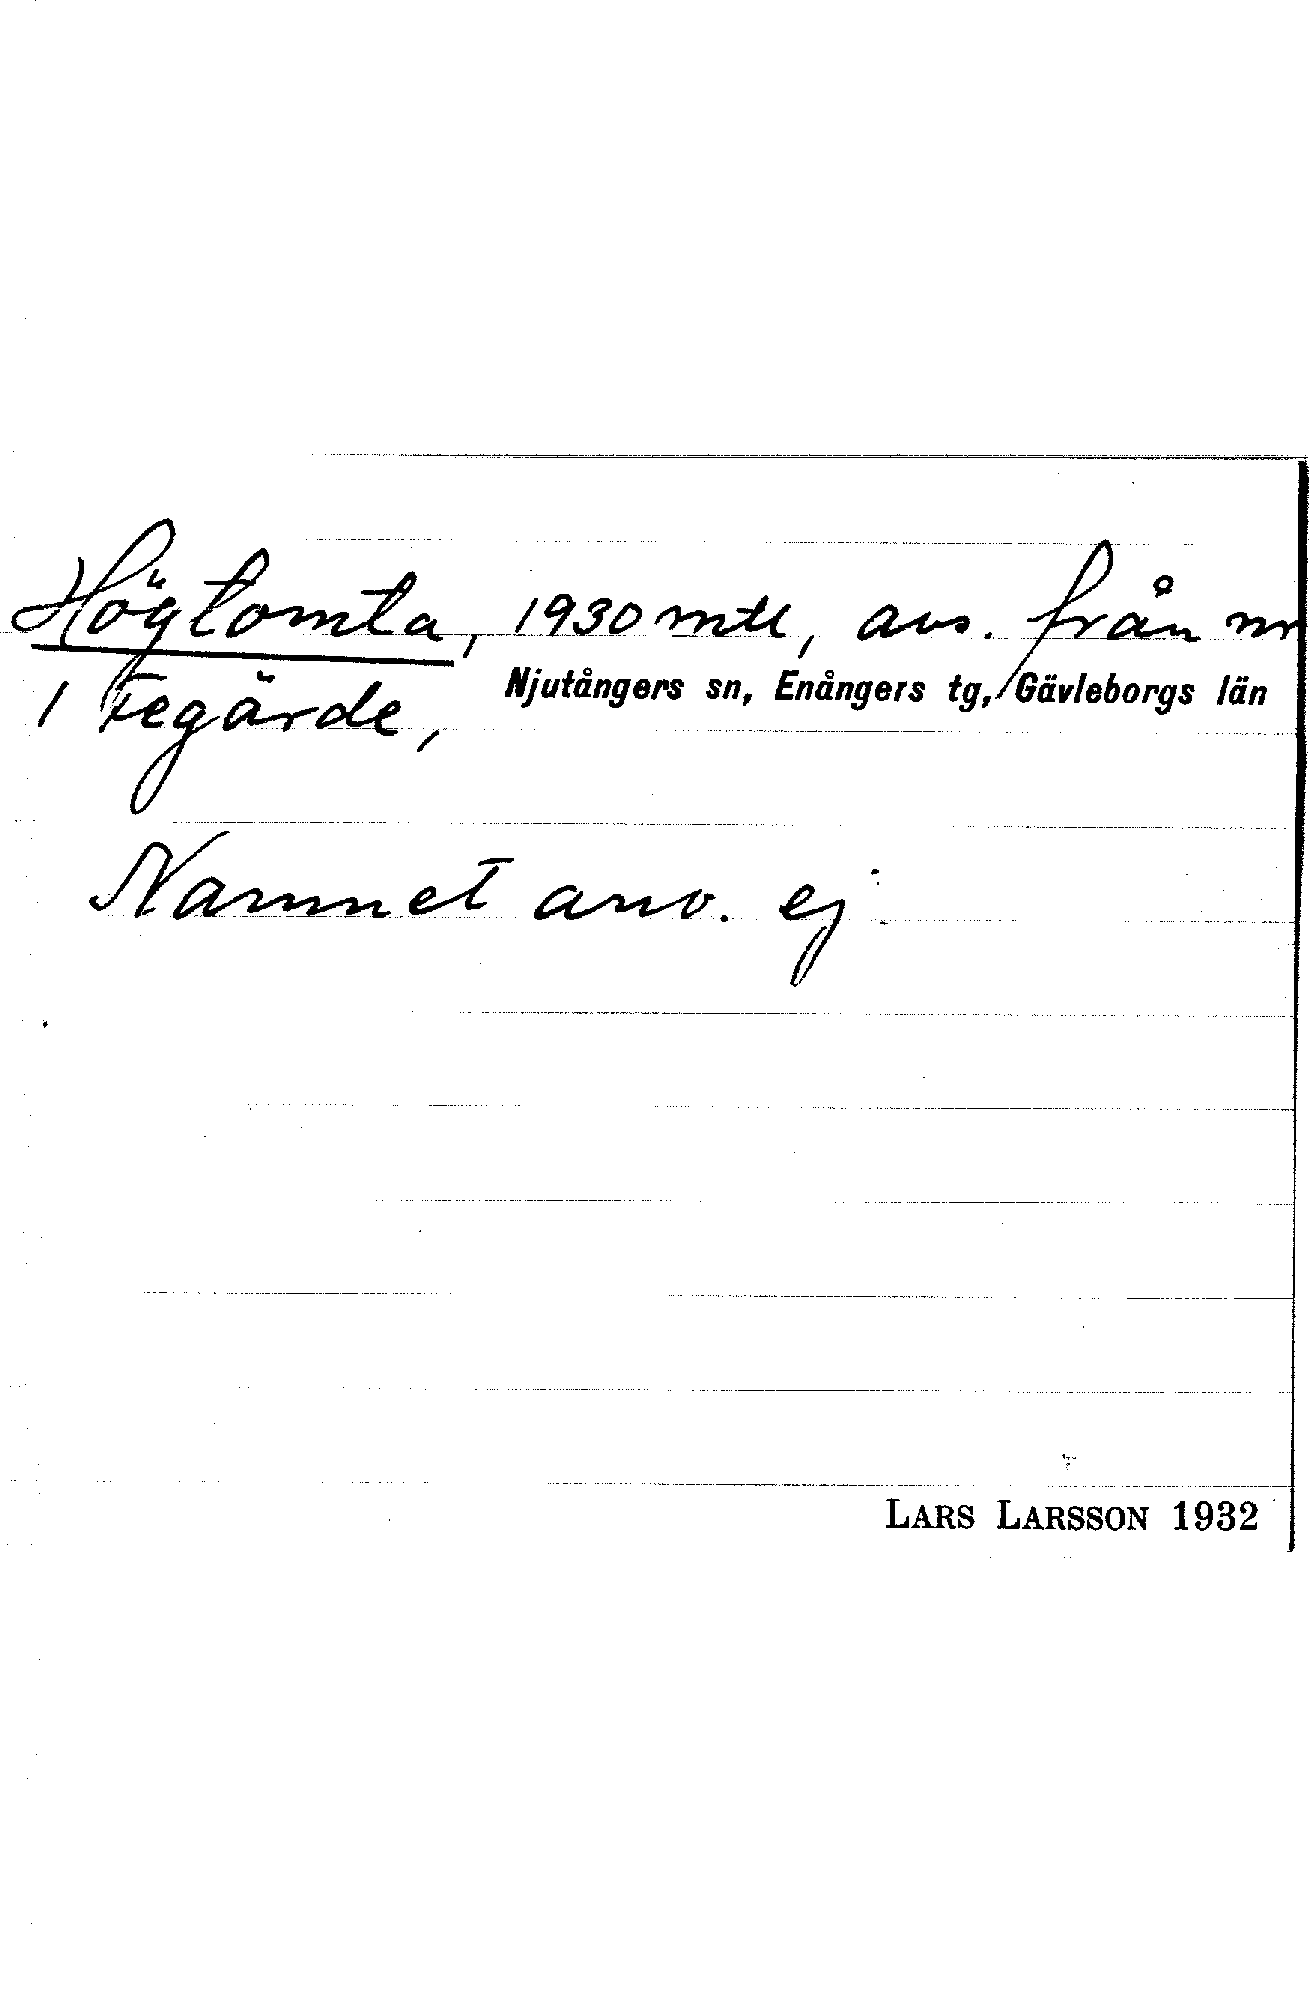 Högtomta, 1930 mtl, avs. från nr
1 Fegärde, Njutångers sn, Enångers tg, Gävleborgs län
Namnet anv. ej
LARS LARSSON 1932